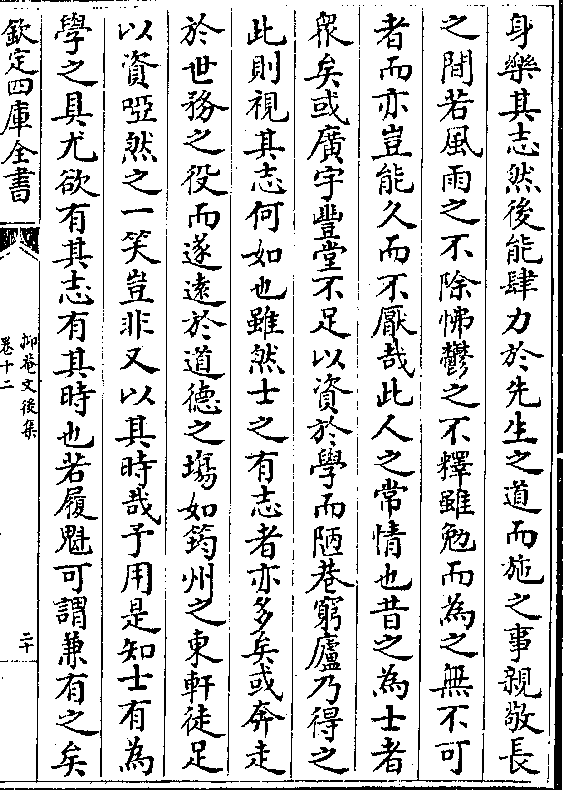 身樂其志然後能肆力於先生之道而施之事親敬長
之間若風雨之不除怫鬱之不釋雖勉而為之無不可
者而亦豈能久而不厭哉此人之常情也昔之為士者
衆矣或廣宇豐堂不足以資於學而陋巷窮廬乃得之
此則視其志何如也雖然士之有志者亦多矣或奔走
於世務之役而遂遠於道德之塲如筠州之東軒徒足
以資啞然之一笑豈非又以其時哉予用是知士有為
學之具尤欲有其志有其時也若履魁可謂兼有之矣
欽定四庫全書
抑菴文後集
卷十二
二十